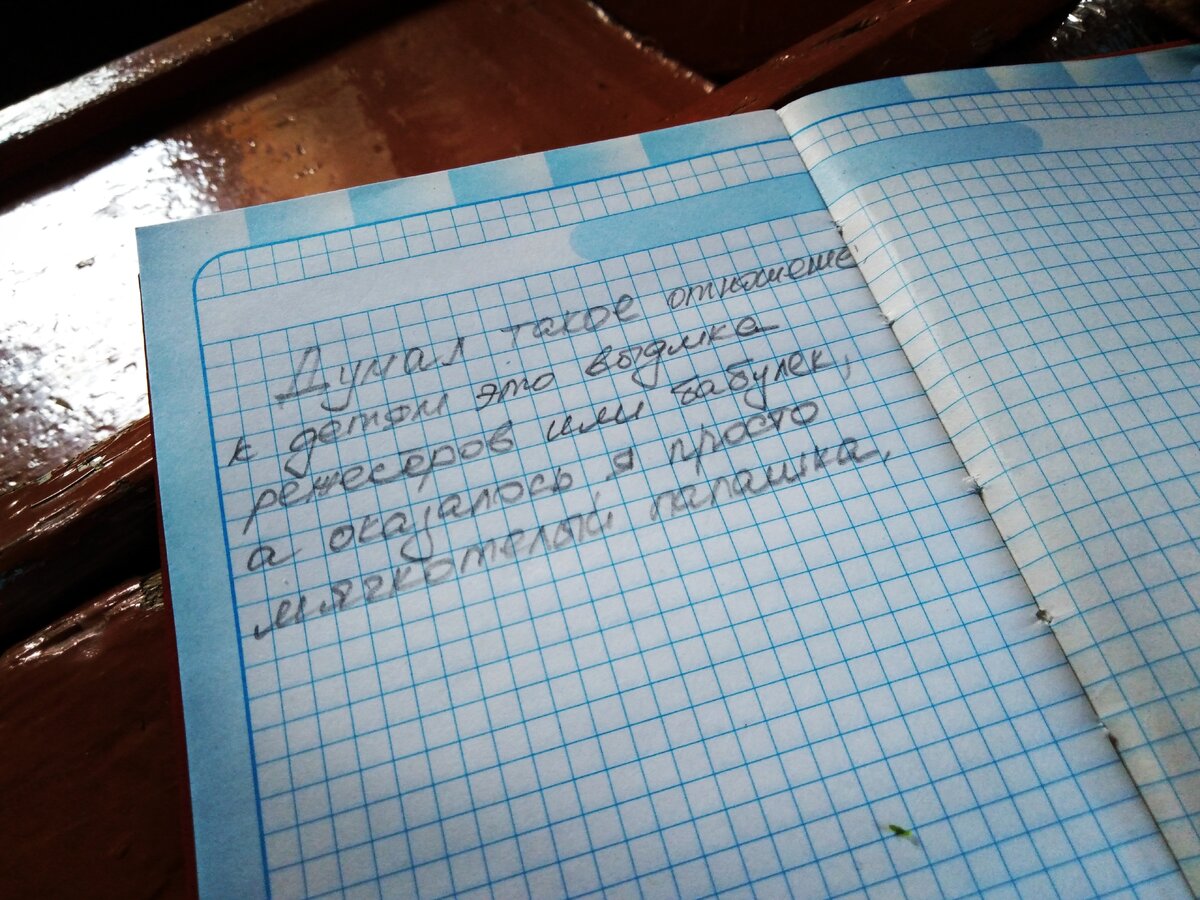 Думал такое отношение
к детям это выдумка
режесеров или бабулек,
а оказалось я просто
мягкотелый папашка.